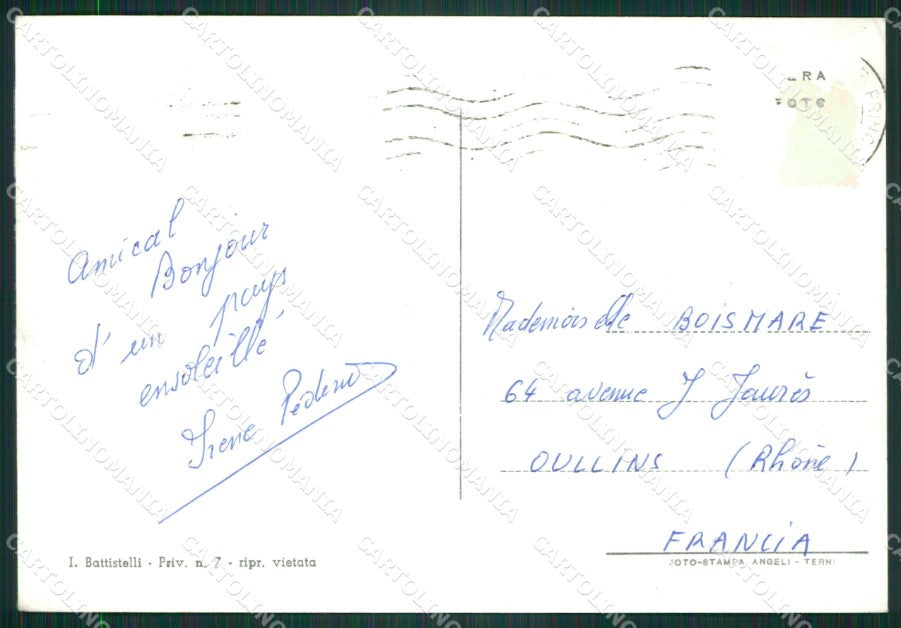 Amical
Bonjour
d'un pays
ensoleillé
Irene
Mademoiselle BOISMARE
64 avenue J Jaurès
OULLINS (Rhône)
FRANCIA
I. Battistelli - Priv. n. 7 - ripr. vietata
FOTO-STAMPA ANGELI - TERNI
VERA
FOTO
CARTOLINOMANIA